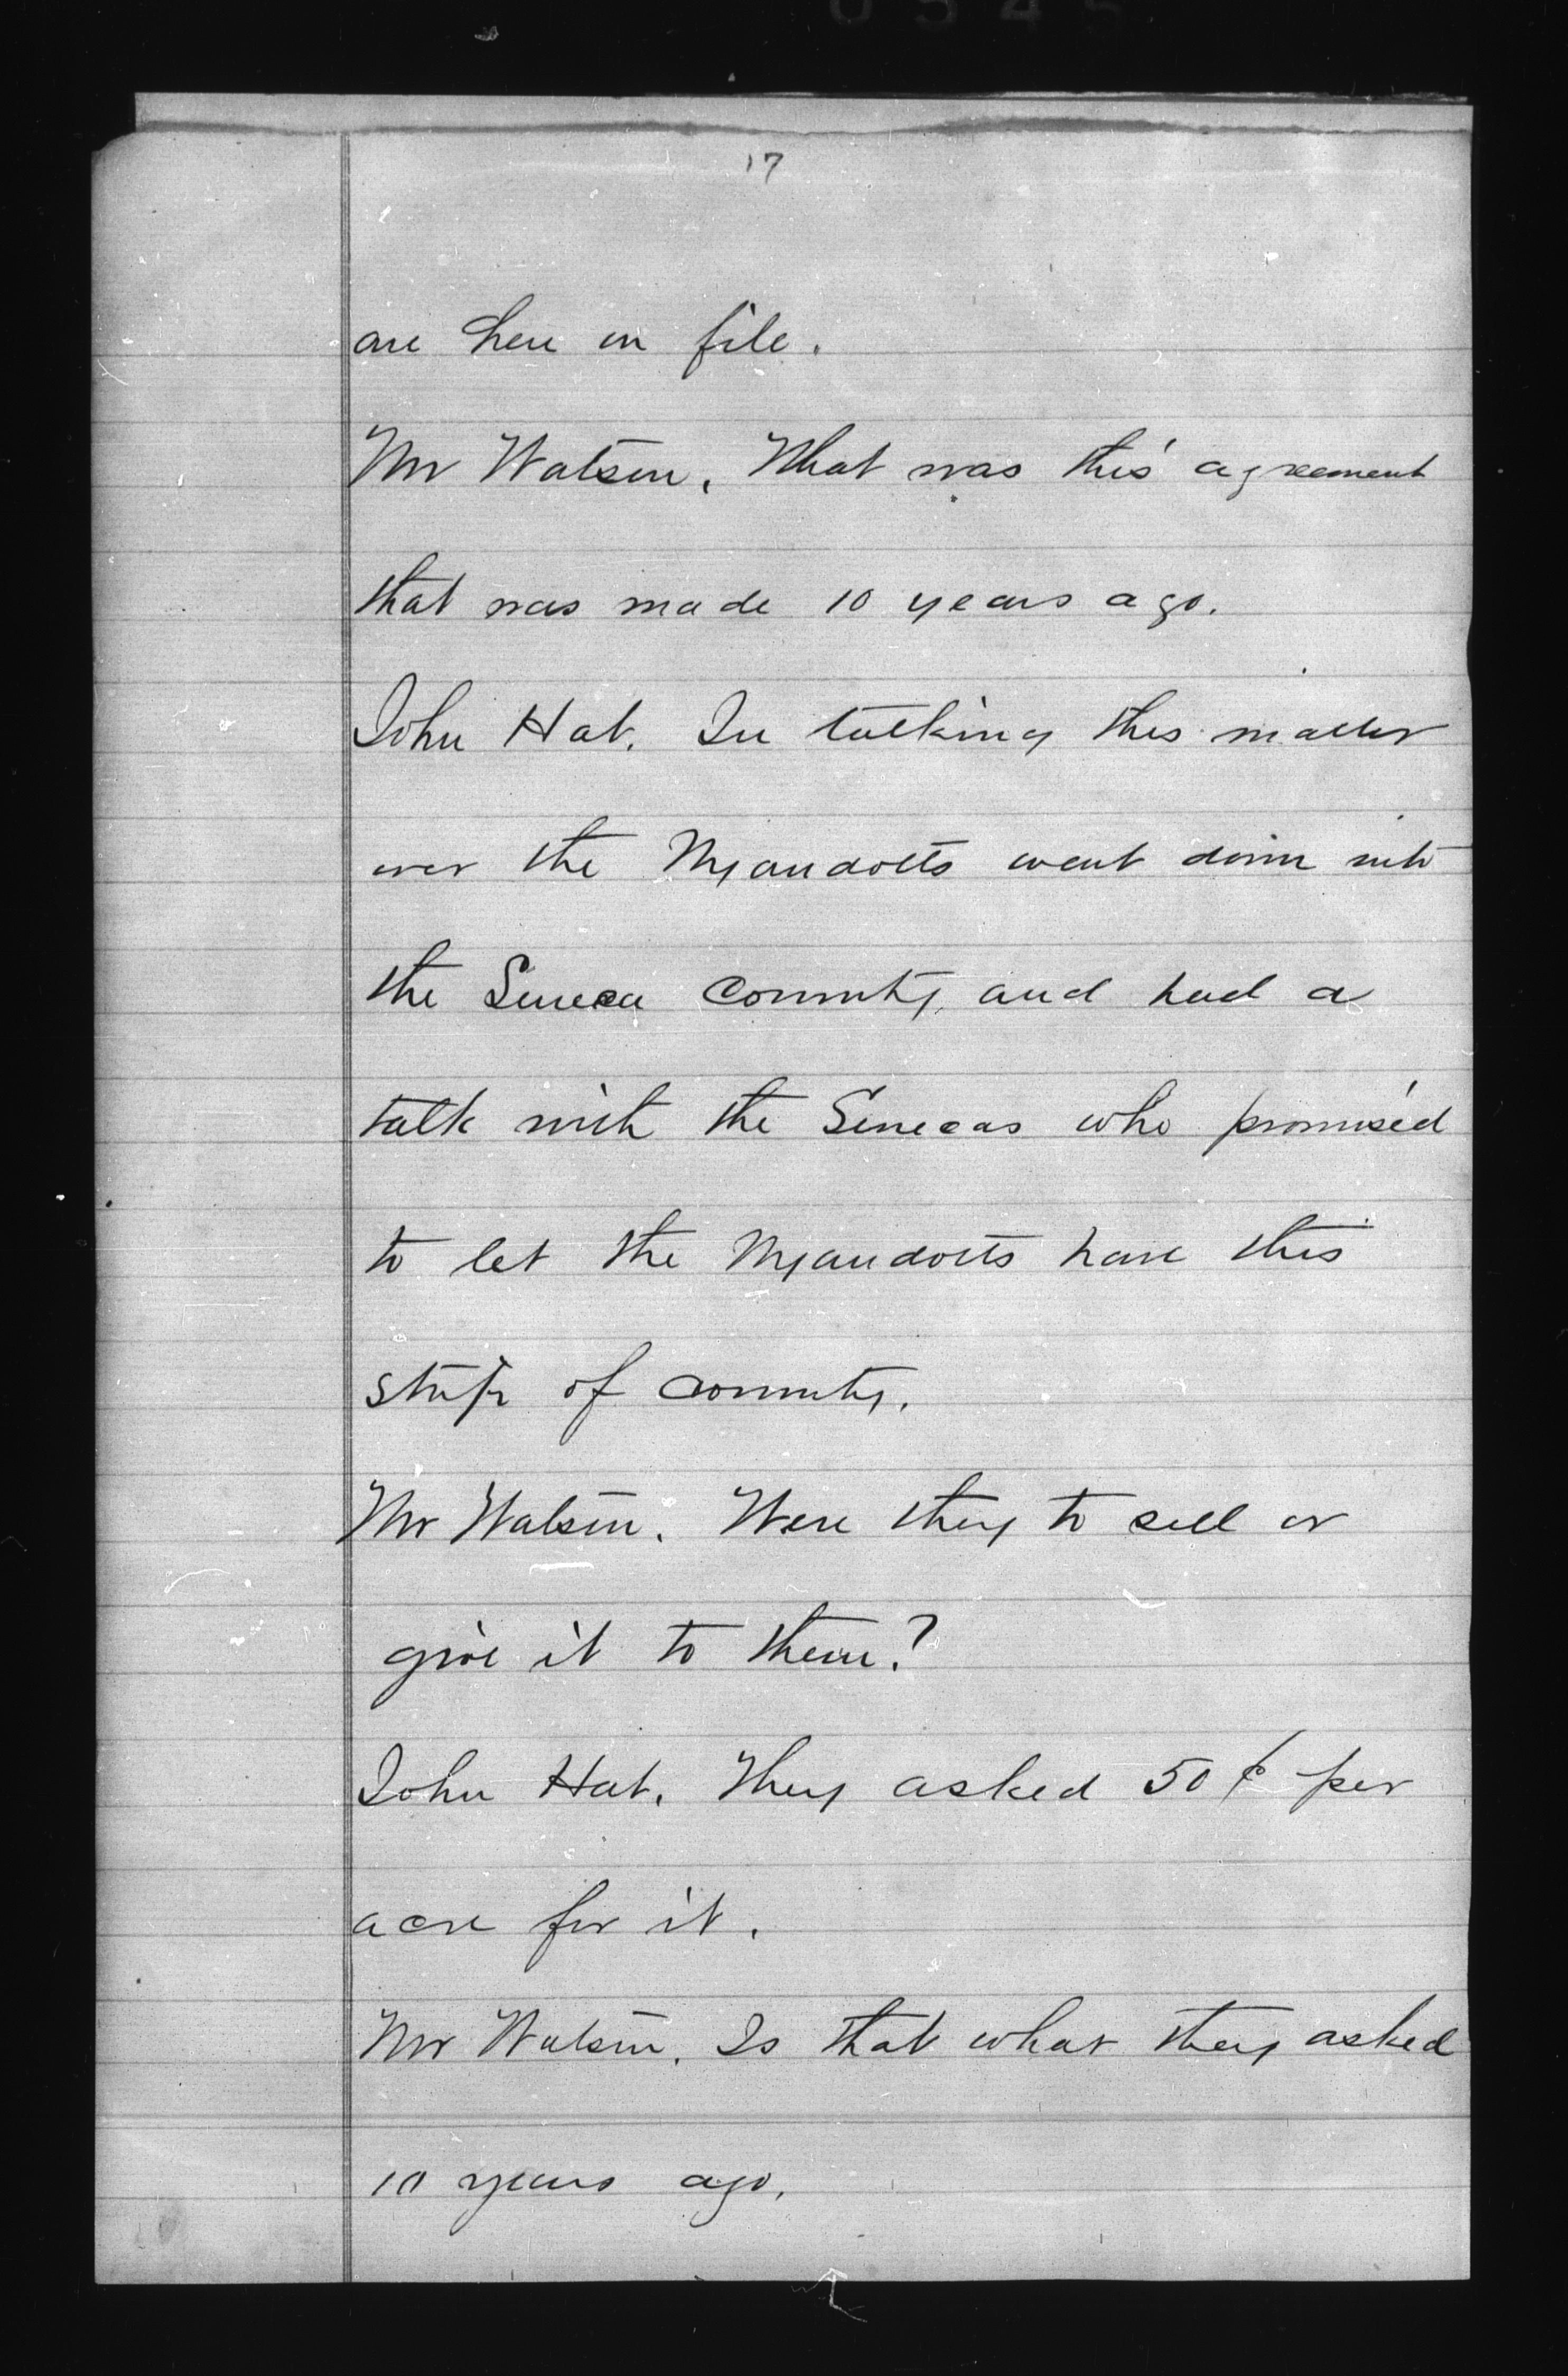 17
are here on file.
Mr Watson. What was this agreement
that was made 10 years ago.
John Hat. In talking this matter
over the Wyandotts went down into
the Seneca Country, and had a
talk with the Senecas who promised
to let the Wyandotts have this
strip of country.
Mr Watson. Were they to sell or
give it to them?
John Hat. They asked 50 ¢ per
acre for it.
Mr Watson. Is that what they asked
10 years ago.